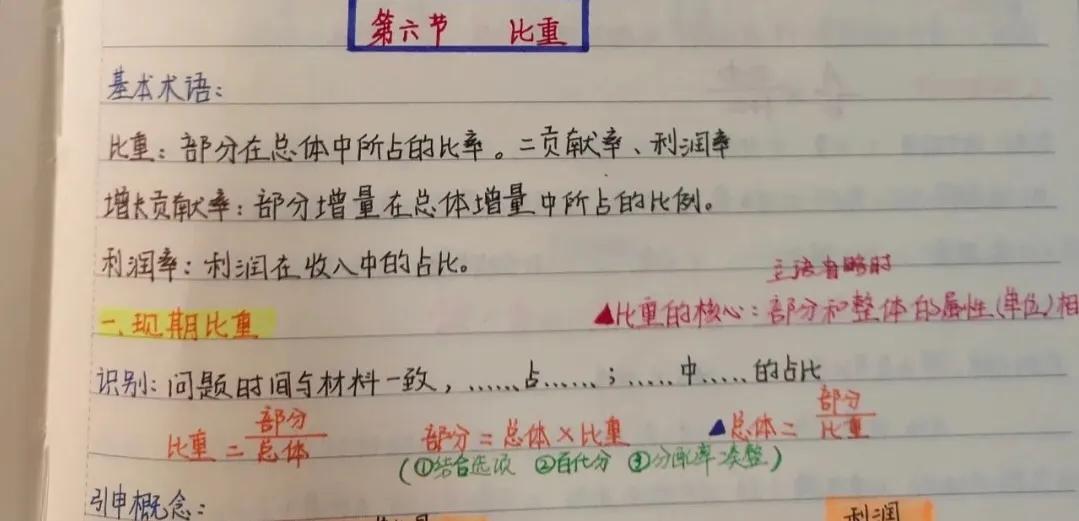 第六节 比重
基本术语：
比重：部分在总体中所占的比率。=贡献率、利润率
增长贡献率：部分增量在总体增量中所占的比例。
利润率：利润在收入中的占比。
主语省略时
一、现期比重 ▲比重的核心：部分和整体的属性(单位)相
识别：问题时间与材料一致，……占……；……中……的占比
比重=部分/总体 部分=总体×比重 ▲总体=部分/比重
(①结合选项 ②百化分 ③分配率凑整)
引申概念：
利润